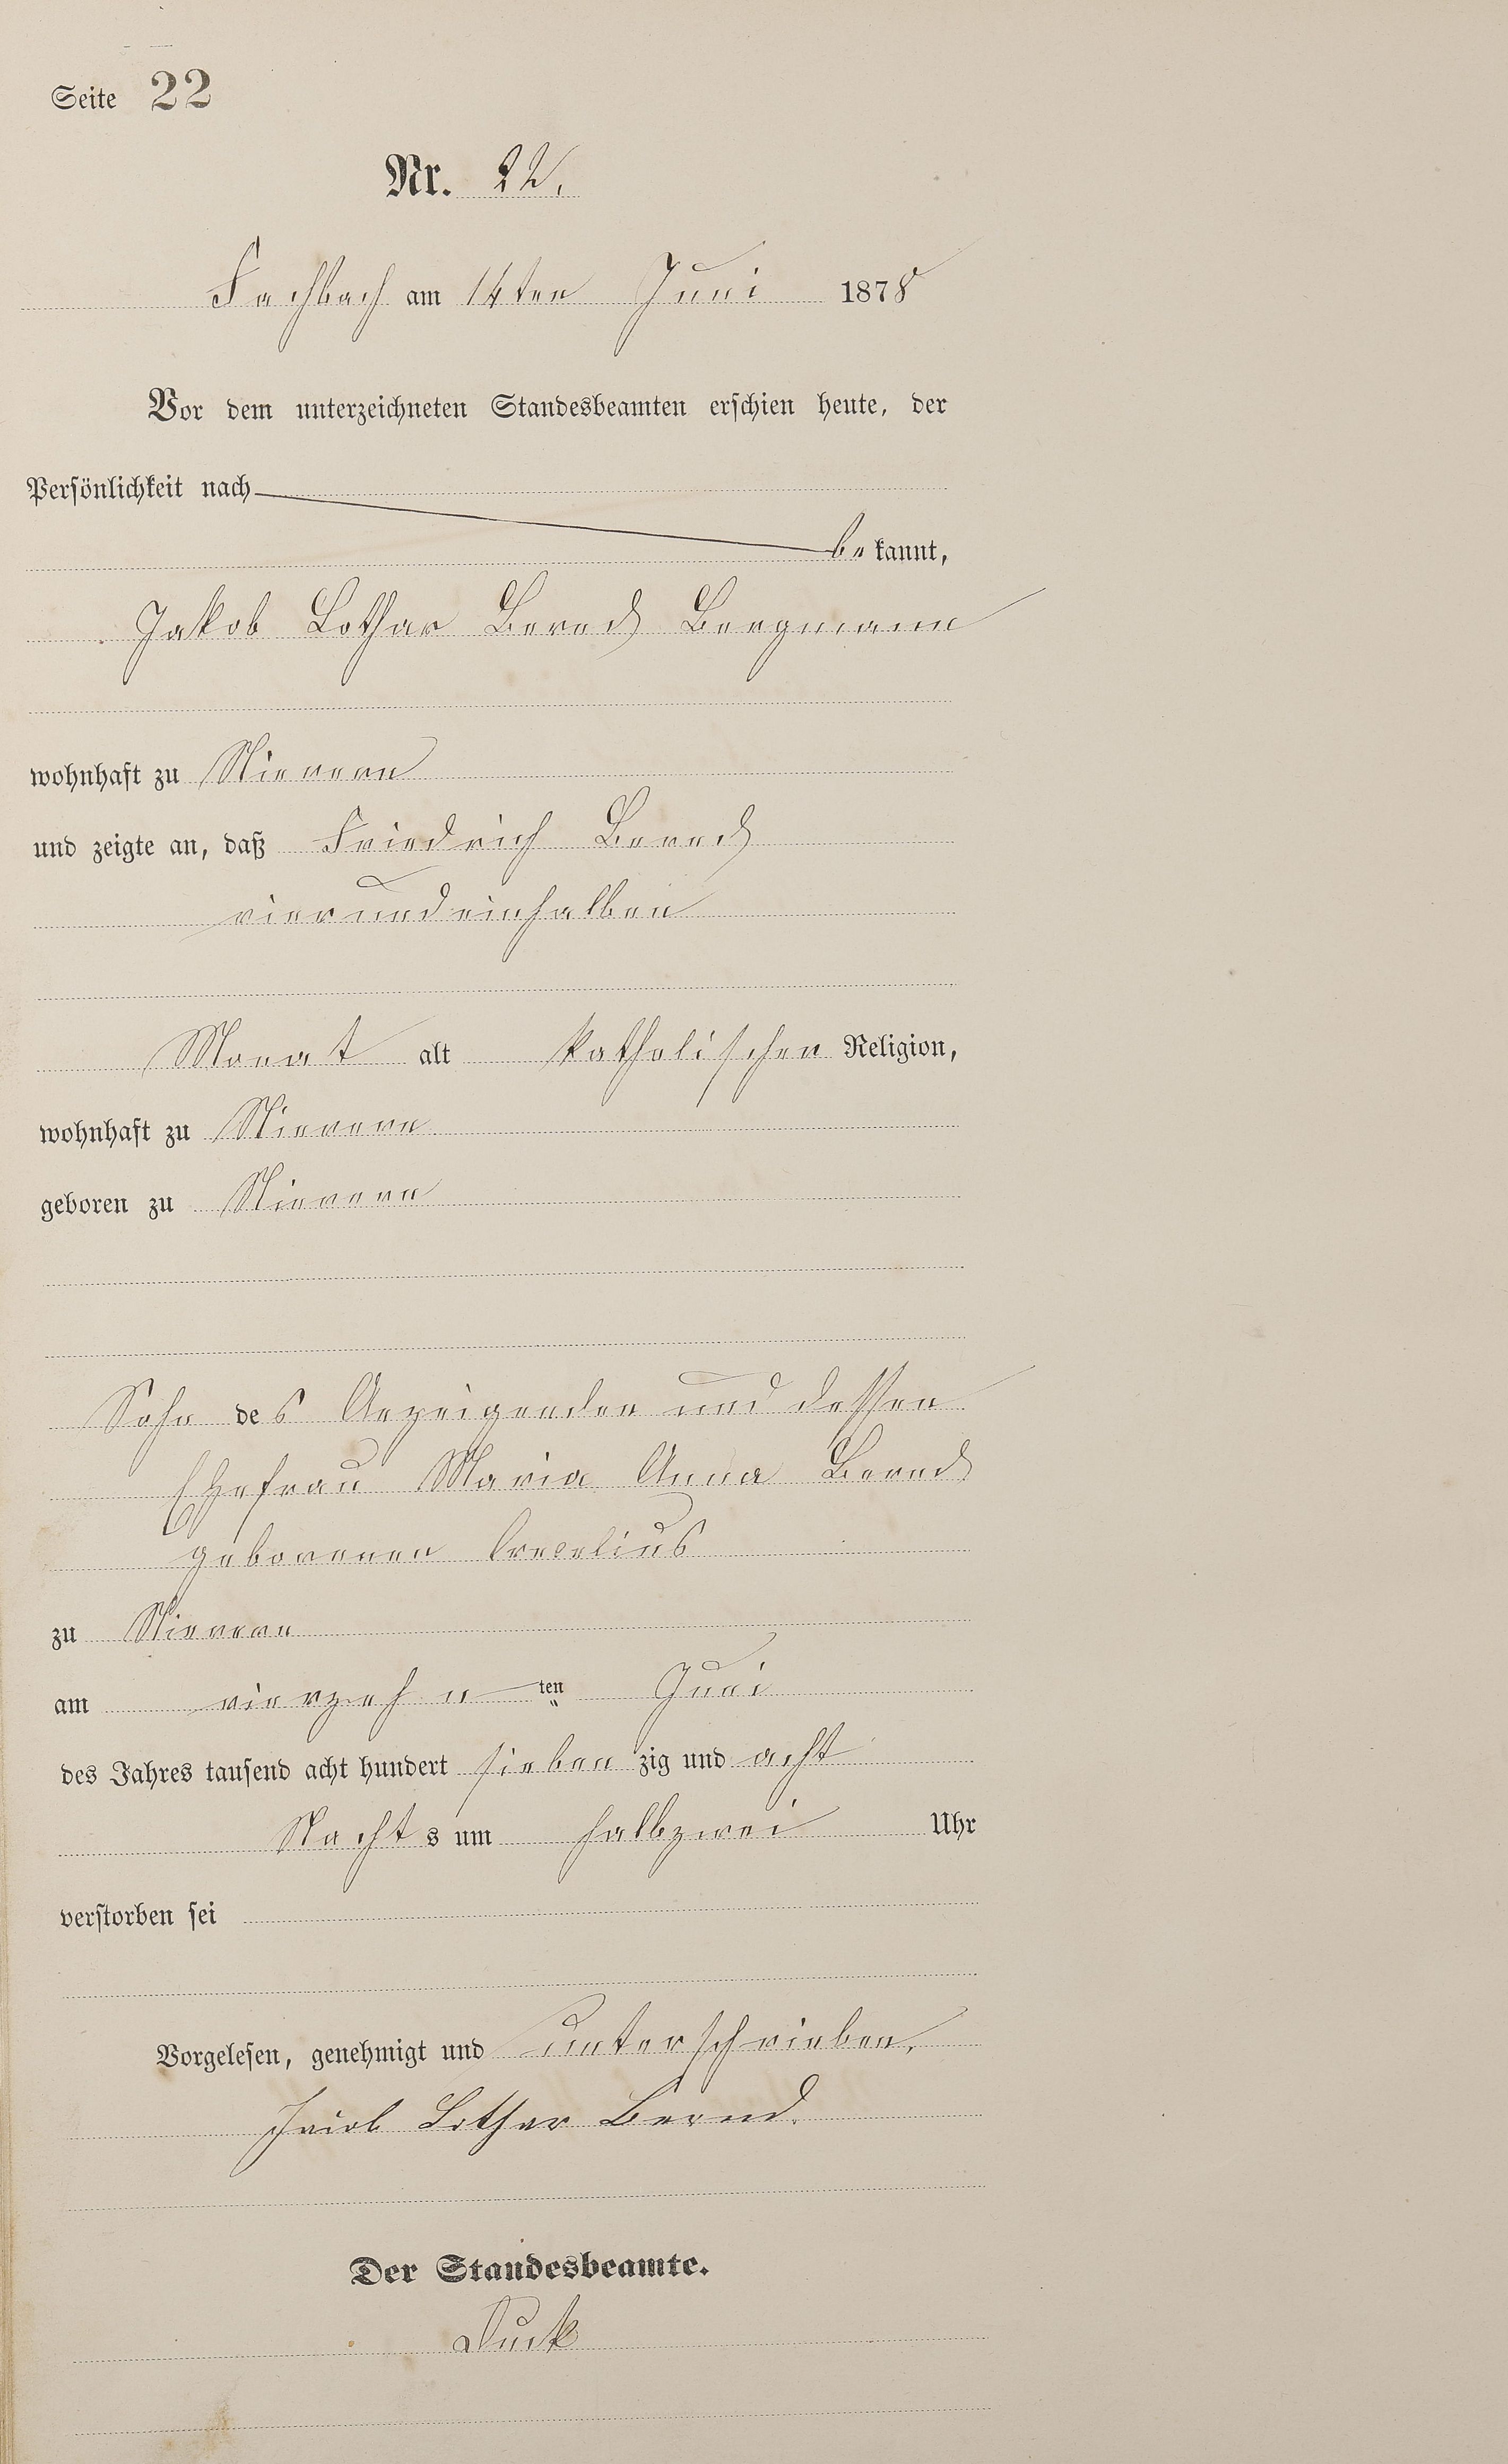 Seite 22
Nr. 22.
Fachbach am 14ten Juni 1878
Vor dem unterzeichneten Standesbeamten erschien heute, der
Persönlichkeit nach
be kannt,
Jakob Lothar Bernd Bergmann
wohnhaft zu Nievern
und zeigte an, daß Friedrich Bernd
vierundeinhalben
Monat alt katholischer Religion,
wohnhaft zu Nievern
geboren zu Nievern
Sohn des Anzeigenden und dessen
Ehefrau Maria Anna Bernd
geborenen Crecelius
zu Nievern
am vierzehn ten Juni
des Jahres tausend acht hundert sieben zig und acht
Nacht s um halbzwei Uhr
verstorben sei
Vorgelesen, genehmigt und unterschrieben.
Jacob Lothar Bernd.
Der Standesbeamte.
Duck